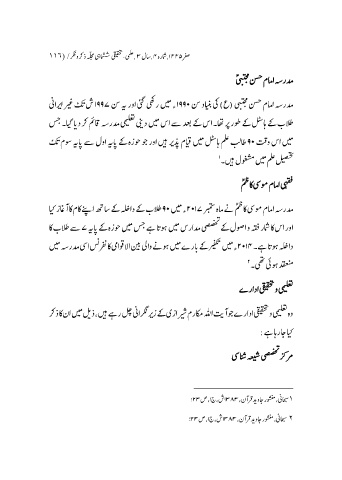 صفر ۱۴۴۵، شمارہ ۴، سال ۳، علمی۔ تحقیقی ششماہی مجلہ ذکر و فکر / (۱۱۶)
مدرسہ امام حسن مجتبیٰؑ
مدرسہ امام حسن مجتبیٰ (ع) کی بنیاد سن ۱۹۹۰ء میں رکھی گئی اور یہ سن ۱۹۹۷ش تک غیر ایرانی
طلاب کے ہاسٹل کے طور پر تھا۔ اس کے بعد سے اس میں دینی تعلیمی مدرسہ قائم کر دیا گیا۔ جس
میں اس وقت ۹۰ طالب علم ہاسٹل میں قیام پذیر ہیں اور جو حوزہ کے پایہ اول سے پایہ سوم تک
تحصیل علم میں مشغول ہیں۔۱
فقہی امام موسی کاظمؑ
مدرسہ امام موسی کاظمؑ نے ماہ ستمبر ۲۰۱۷ء میں ۹۰ طلاب کے داخلہ کے ساتھ اپنے کام کا آغاز کیا
اور اس کا شمار فقہ و اصول کے تخصصی مدارس میں ہوتا ہے جس میں حوزہ کے پایہ ۷ سے طلاب کا
داخلہ ہوتا ہے۔ ۲۰۱۴ء میں تکفیر کے بارے میں ہونے والی بین الاقوامی کانفرنس اسی مدرسہ میں
منعقد ہوئی تھی۔۲
تعلیمی و تحقیقی ادارے
وہ تعلیمی و تحقیقی ادارے جو آیت اللہ مکارم شیرازی کے زیر نگرانی چل رہے ہیں، ذیل میں ان کا ذکر
کیا جا رہا ہے:
مرکز تخصصی شیعہ شناسی
۱ سبحانی، منشور جاوید قرآن، ۱۳۸۳ش، ج۱، ص۲۳؛
۲ سبحانی، منشور جاوید قرآن، ۱۳۸۳ش، ج۱، ص۲۳؛